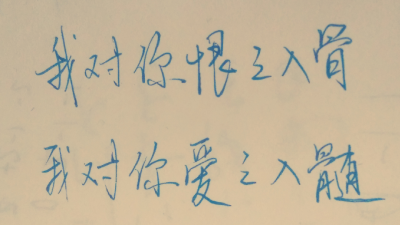 我对你恨之入骨
我对你爱之入髓